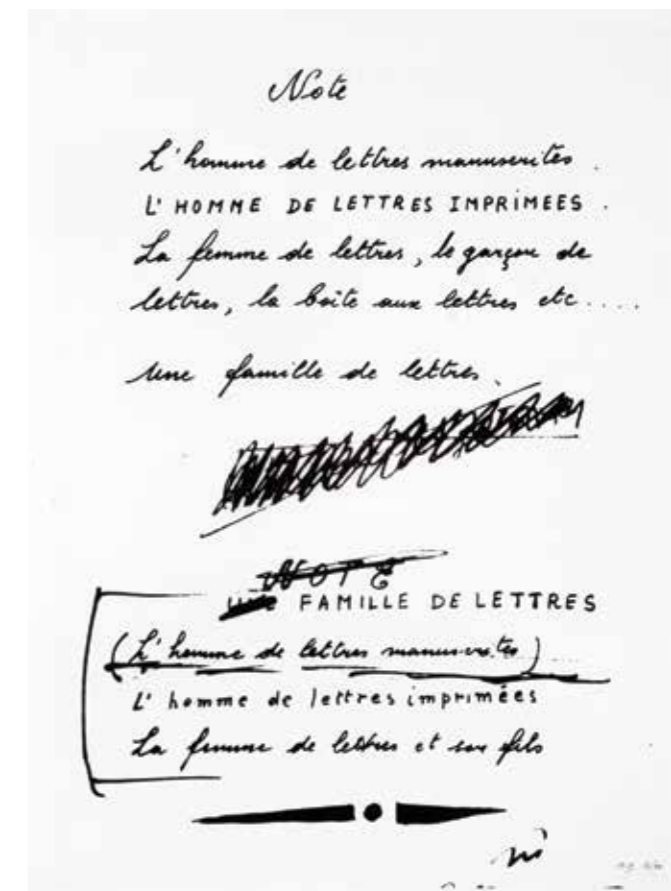 Note
L'homme de lettres manuscrites.
L'HOMME DE LETTRES IMPRIMEES.
La femme de lettres, le garçon de
lettres, la boîte aux lettres etc.....
Une famille de lettres.
NOTE
une FAMILLE DE LETTRES
(L'homme de lettres manuscrites)
L'homme de lettres imprimées
La femme de lettres et son fils